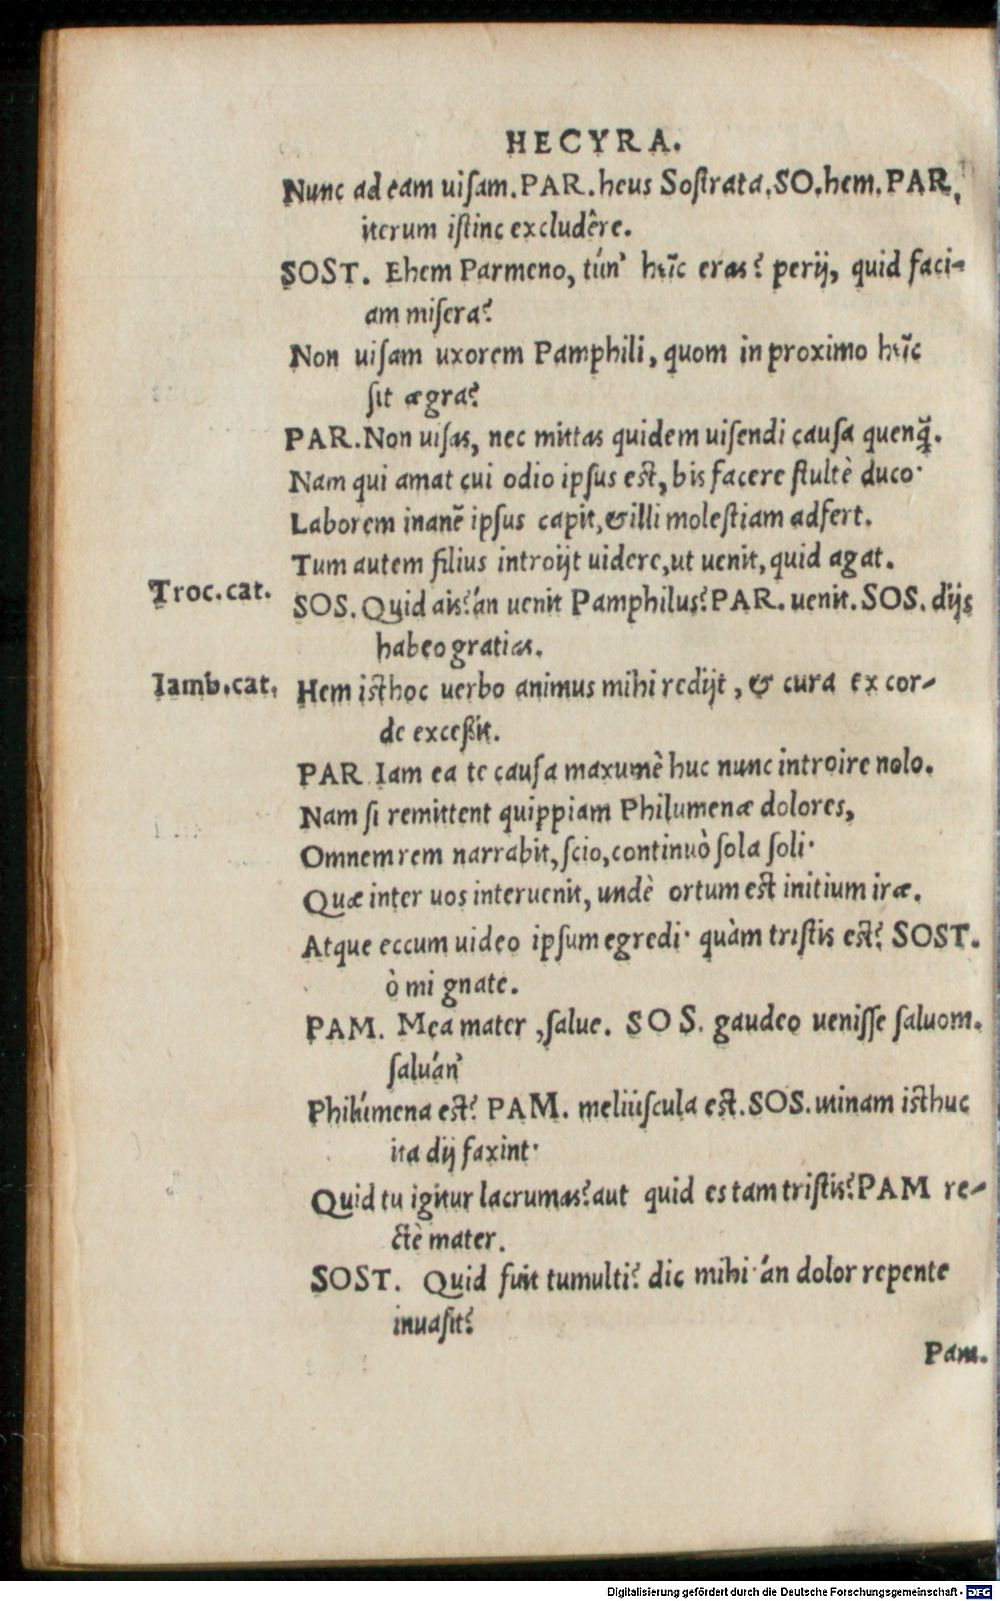 HECYRA.
Nunc ad eam uiſam. PAR. heus Soſtrata. SO. hem. PAR.
iterum iſtinc excludêre.
SOST. Ehem Parmeno, tún' hu̅c eras? perij, quid faci-
am miſera?
Non uiſam uxorem Pamphili, quom in proximo hu̅c
ſit ægra?
PAR. Non uiſas, nec mittas quidem uiſendi cauſa quenq̃.
Nam qui amat cui odio ipſus eſt, bis facere ſtultè duco·
Laborem inanẽ ipſus capit, & illi moleſtiam adfert.
Tum autem filius introijt uidere, ut uenit, quid agat.
Troc. cat. SOS. Quid ais? án uenit Pamphilus? PAR. uenit. SOS. dijs
habeo gratias.
Iamb. cat. Hem iſthoc uerbo animus mihi redijt, & cura ex cor-
de exceßit.
PAR Iam ea te cauſa maxumè huc nunc introire nolo.
Nam ſi remittent quippiam Philumenæ dolores,
Omnem rem narrabit, ſcio, continuò ſola ſoli·
Quæ inter uos interuenit, undè ortum eſt initium iræ.
Atque eccum uideo ipſum egredi· quàm triſtis eſt? SOST.
ò mi gnate.
PAM. Mea mater, ſalue. SOS. gaudeo ueniſſe ſaluom.
ſalúan'
Philúmena eſt? PAM. meliúſcula eſt. SOS. utinam iſthuc
ita dij faxint·
Quid tu igitur lacrumas? aut quid es tam triſtis? PAM re-
ctè mater.
SOST. Quid fuit tumulti? dic mihi· án dolor repente
inuaſit?
Pam.
Digitalisierung gefördert durch die Deutsche Forschungsgemeinschaft - DFG